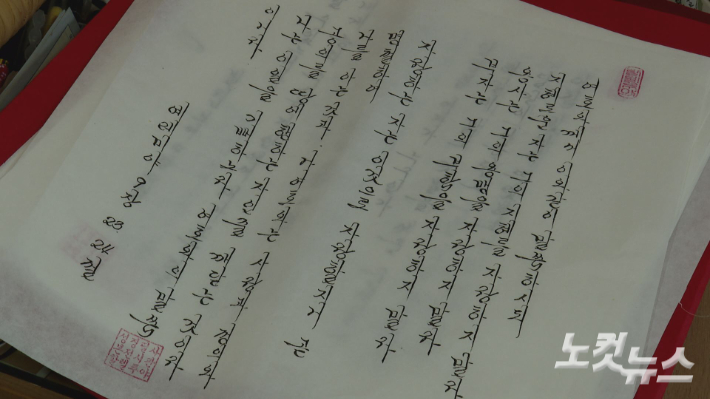 여호와께서 이와같이 말씀하시되
지혜로운 자는 그의 지혜를 자랑하지 말라
용사는 그의 용맹을 자랑하지 말라
부자는 그의 부함을 자랑하지 말라
자랑하는 자는 이것으로 자랑할지니 곧
명철하여
나를 아는 것과 나 여호와는 사랑과 정의와
공의를 땅에 행하는 자인줄 깨닫는 것이라
나는 이 일을 기뻐하노라 여호와의 말씀
이니라
예레미야 9장 23 24 절
노컷뉴스